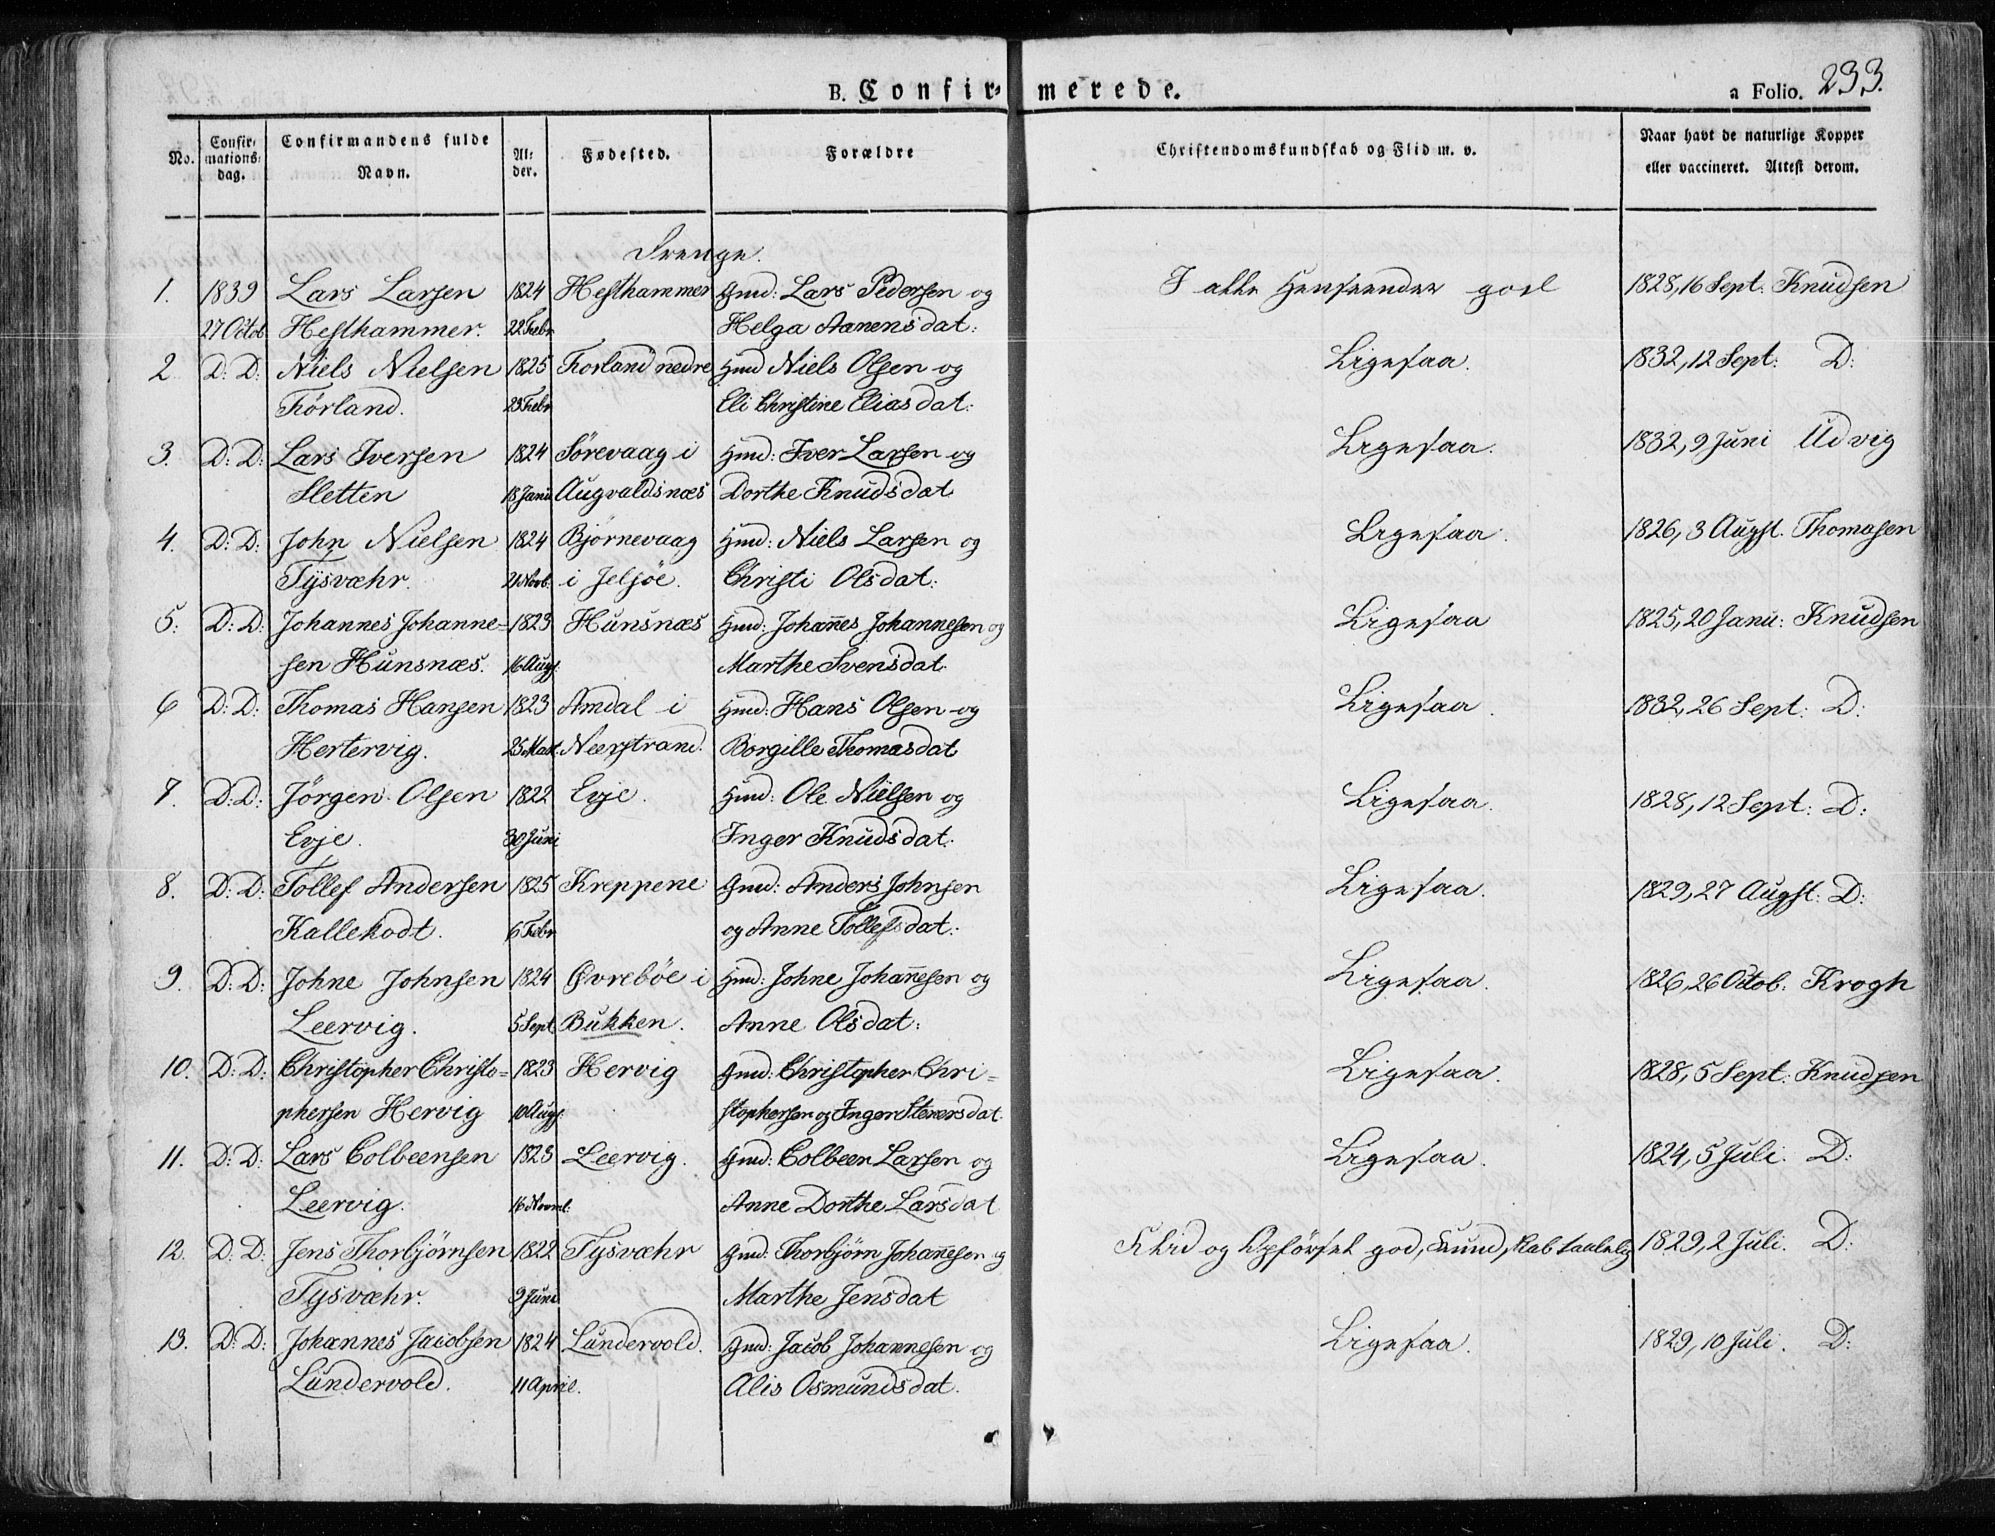 B. Confirmerede.
a Folio. 233.
No. Confirmations-dag. Confirmandens fulde Navn. Alder. Fødested. Forældre Christendomskundskab og Flid m. v. Naar havt de naturlige Kopper eller vaccineret. Attest derom.
Drenge.
1. 1839 Lars Larsen 1824 Hesthammer Gmd: Lars Pedersen og I alle Henseender god 1828, 16 Sept: Knudsen
27 Octob Hesthammer. 22 Febr Helga Aanensdat:
2 D: D: Niels Nielsen 1825 Førland nedre Hmd Niels Olsen og Ligesaa. 1832, 12 Sept: D:
Førland. 23 Febr Eli Christine Eliasdat:
3. D: D: Lars Iversen 1824 Sørevaag i Hmd: Iver Larsen og Ligesaa. 1832, 9 Juni Udvig
Sletten 18 Janu Augvaldsnæs Dorthe Knudsdat
4. D: D: John Nielsen 1824 Bjørnevaag Hmd: Niels Larsen og Ligesaa. 1826, 3 Augst. Thomasen
Tysvæhr. 21 Novb. i Jelsøe. Christi Olsdat:
5: D: D: Johannes Johanne- 1823 Hunsnæs Hmd: Johan̄es Johannesen og Ligesaa 1825, 20 Janu: Knudsen
sen Hunsnæs. 16 Augs Marthe Svensdat.
6 D: D: Thomas Hansen 1823 Amdal i Hmd: Hans Olsen og Ligesaa. 1832, 26 Sept: D:
Hertervig. 25 Mart. Neerstrand. Borgille Thomasdat
7. D: D: Jørgen Olsen 1822 Evje. Hmd: Ole Nielsen og Ligesaa. 1828, 12 Sept: D:
Evje. 30 Juni Inger Knudsdat.
8. D: D: Tollef Andersen 1825 Kreppene Gmd: Anders Johnsen Ligesaa. 1829, 27 Augst: D:
Kallekodt. 6 Febr og Anne Tollefsdat:
9. D: D: Johne Johnsen 1824 Øvrebøe i Hmd: Johne Johan̄esen og Ligesaa. 1826, 26 Octob: Krogh
Leervig. 5 Sept Bukken. Anne Olsdat:
10. D: D: Christopher Christo- 1823 Hervig Gmd: Christopher Chri- Ligesaa. 1828, 5 Sept: Knudsen
phersen Hervig 10 Augs stophersen og Inger Steners dat.
11. D: D: Lars Colbeensen 1823 Leervig. Gmd: Colbeen Larsen og Ligesaa. 1824, 5 Juli. D:
Leervig. 16 Novmb. Anne Dorthe Larsdat
12. D: D: Jens Thorbjørnsen 1822 Tysvæhr Gmd: Thorbjørn Johan̄esen og Flid og Opførsel god, Kundskab taalelig 1829, 2 Juli. D:
Tysvæhr. 9 Juni Marthe Jensdat
13. D: D: Johannes Jacobsen 1824 Lundervold. Gmd: Jacob Johannesen og Ligesaa. 1829, 10 Juli. D:
Lundervold. 11 April. Alis Osmundsdat.